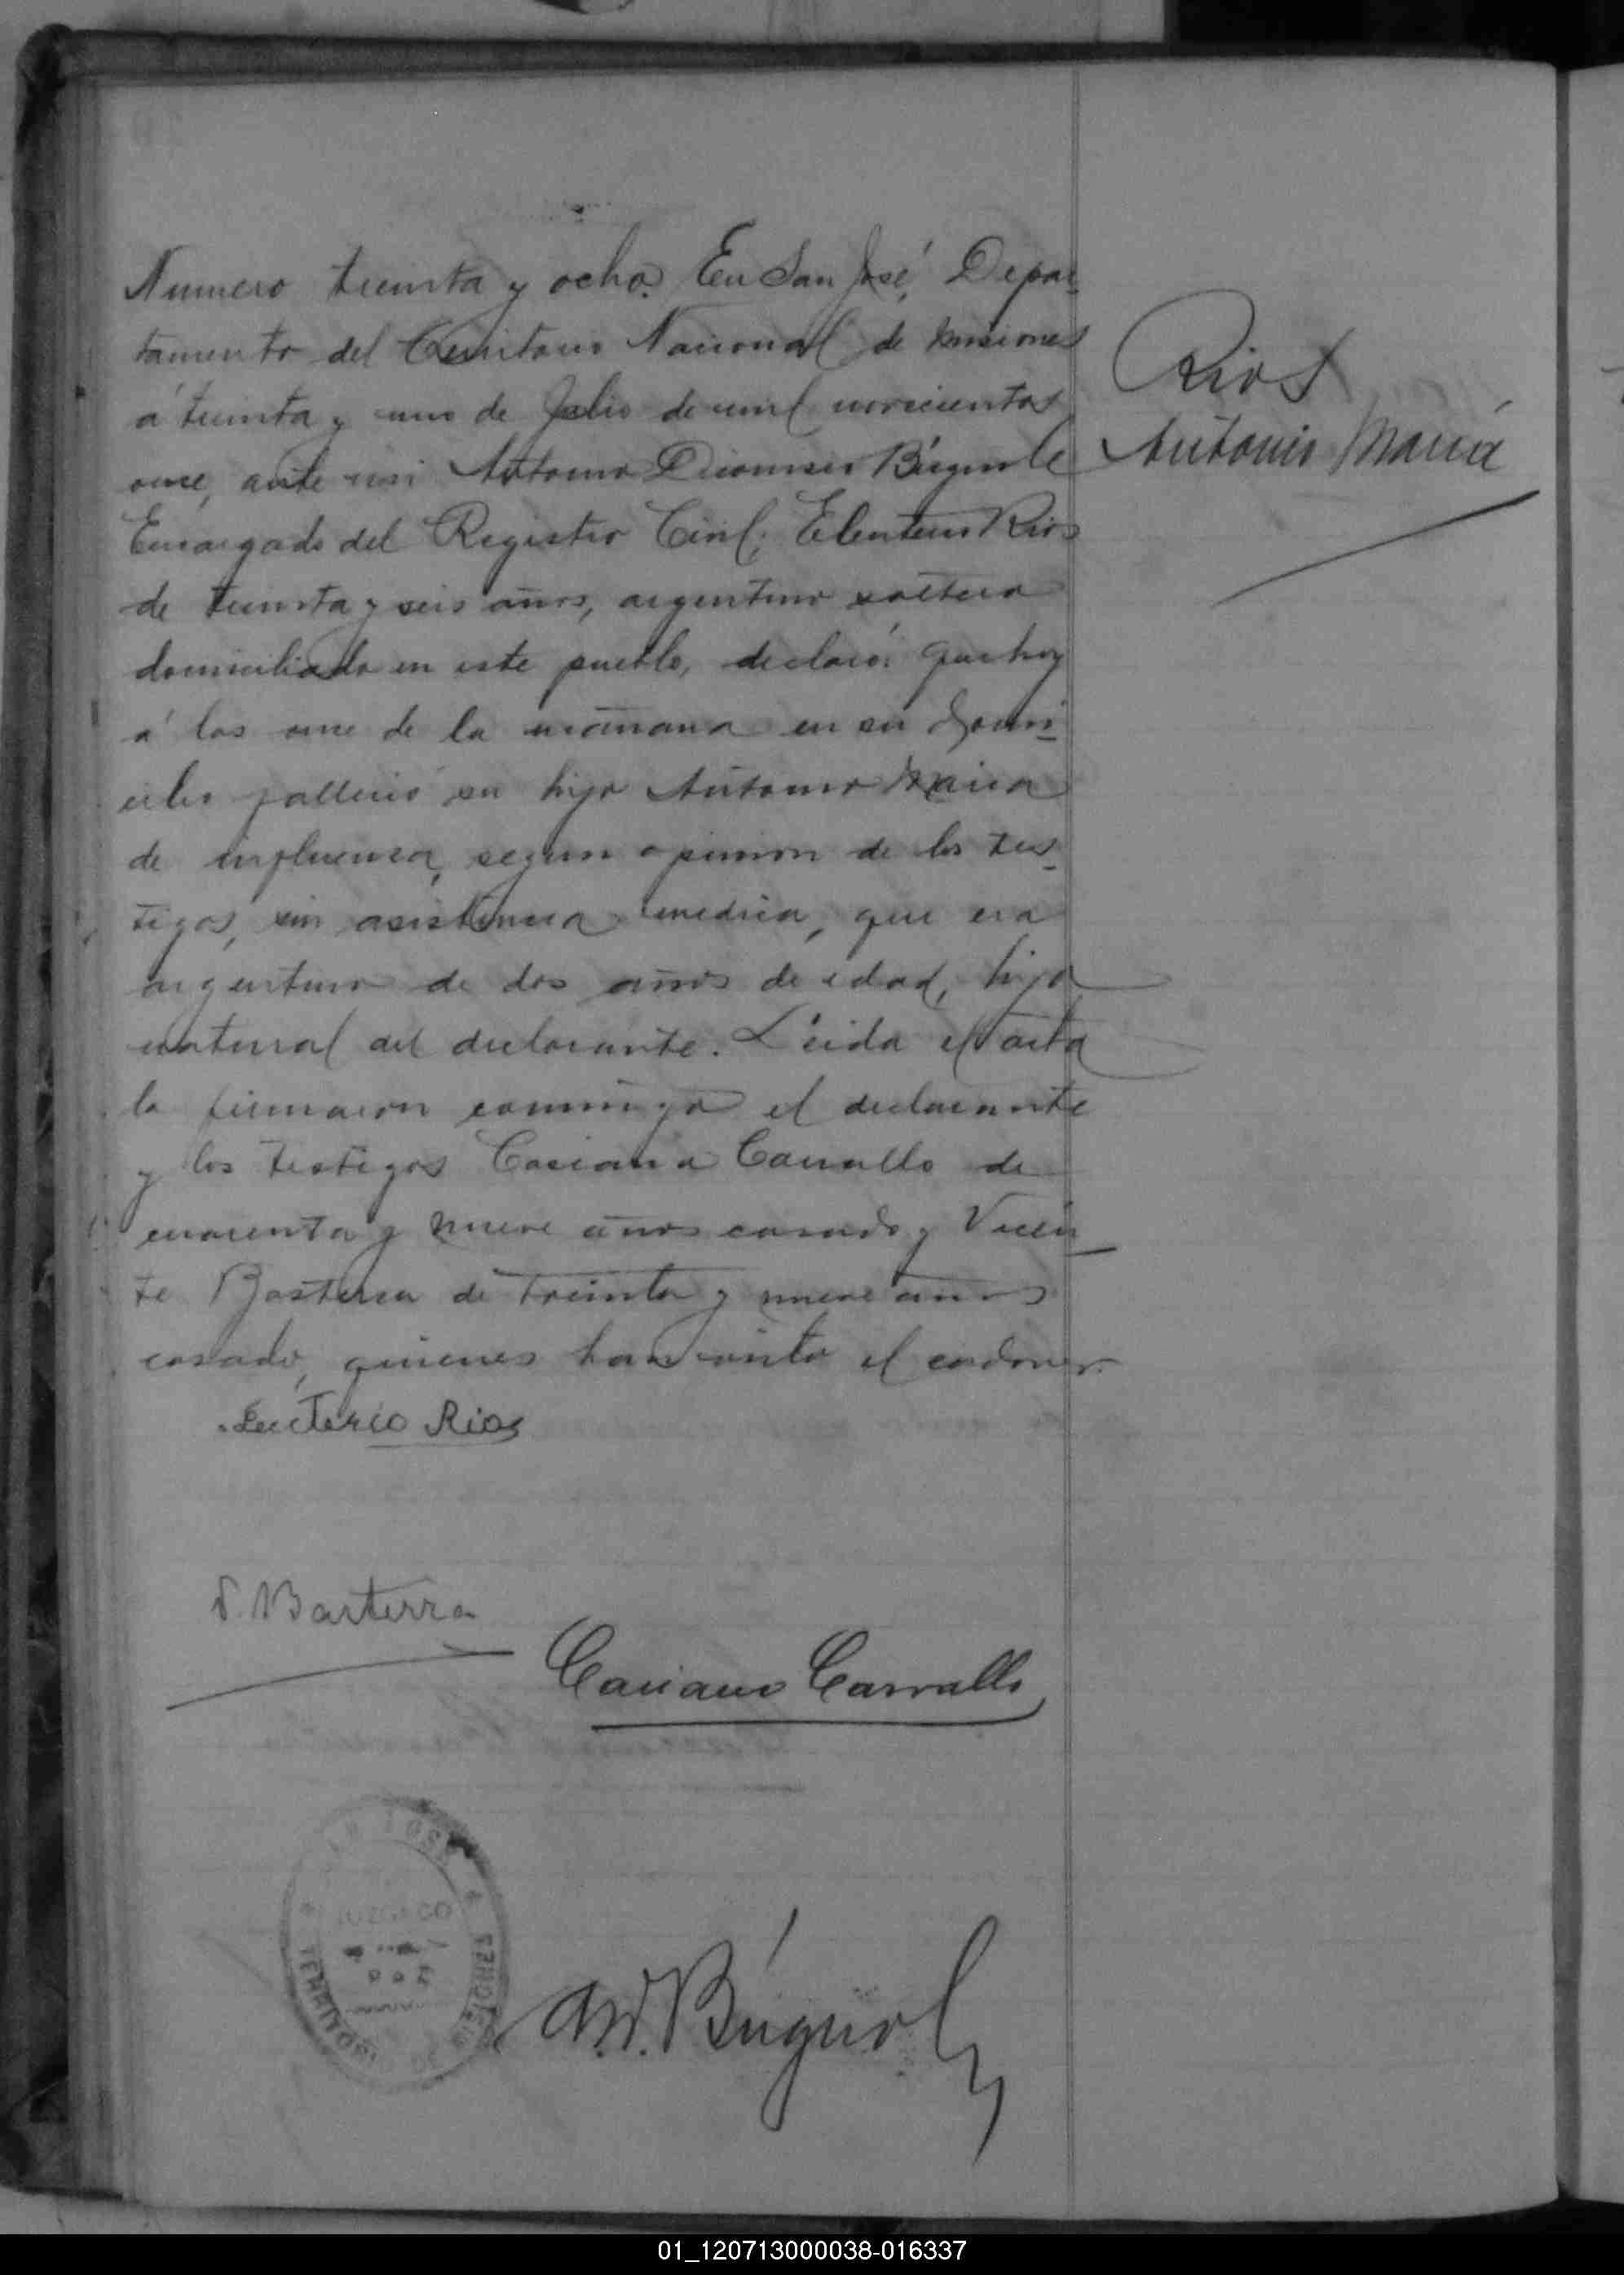 Numero treinta y ocho. En San José, Depar-
tamento del Territorio Nacional de Misiones
á treinta y uno de Julio de mil novecientos
once, ante mi Antonio Dionisio Búgnol
Encargado del Registro Civil; Eleuterio Rios
de treinta y seis años, argentino soltero
domiciliado en este pueblo, declaró: Que hoy
á las once de la mañana en su domi-
cilio fallecio su hijo Antonio Maria
de influenza, segun opinion de los tes-
tigos, sin asistencia medica, que era
argentino de dos años de edad, hijo
natural del declarante. Leida el acta
la firmaron conmigo el declarante
y los testigos Casiano Carvallo de
cuarenta y nueve años casado y Vicen-
te Basterra de treinta y nueve años
casado, quienes han visto el cadaver.
Rios
Antonio Maria
Leuterio Rios
V. Basterra
Casiano Carvallo
JOSÉ
JUZGADO
DE
PAZ
TERRITORIO DE MISIONES
A.D. Búgnol
01_120713000038-016337